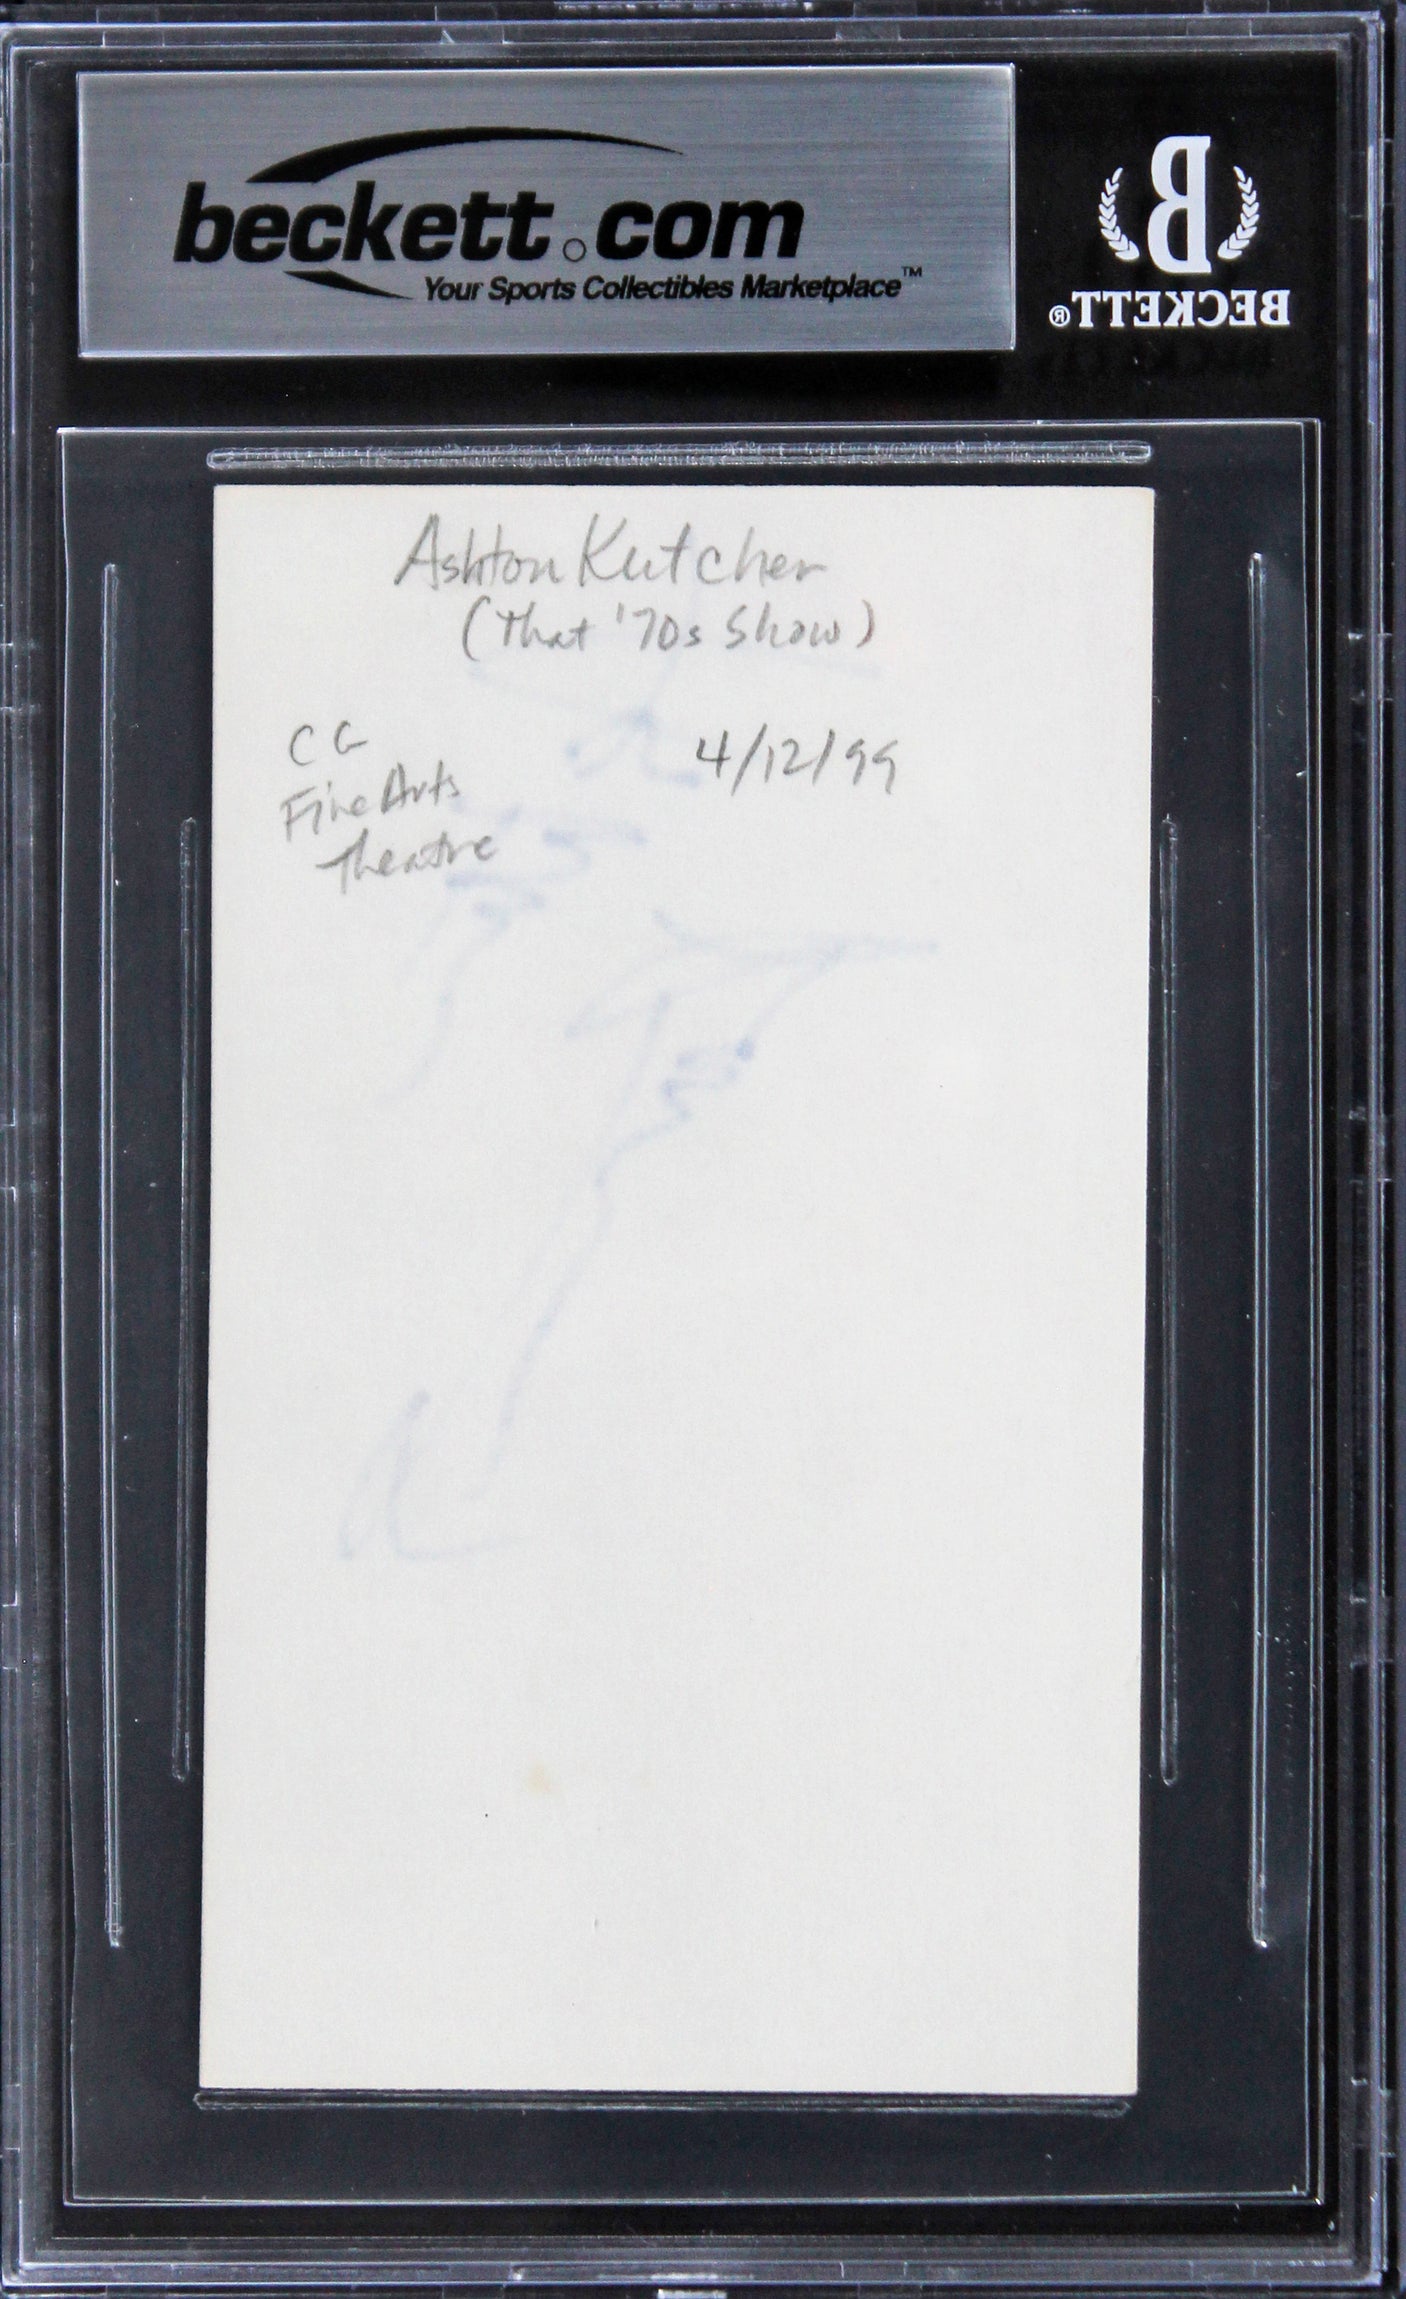 beckett.com
Your Sports Collectibles Marketplace™
B
BECKETT®
Ashton Kutcher
(That '70s Show)
CG
Fine Arts
Theatre
4/12/99